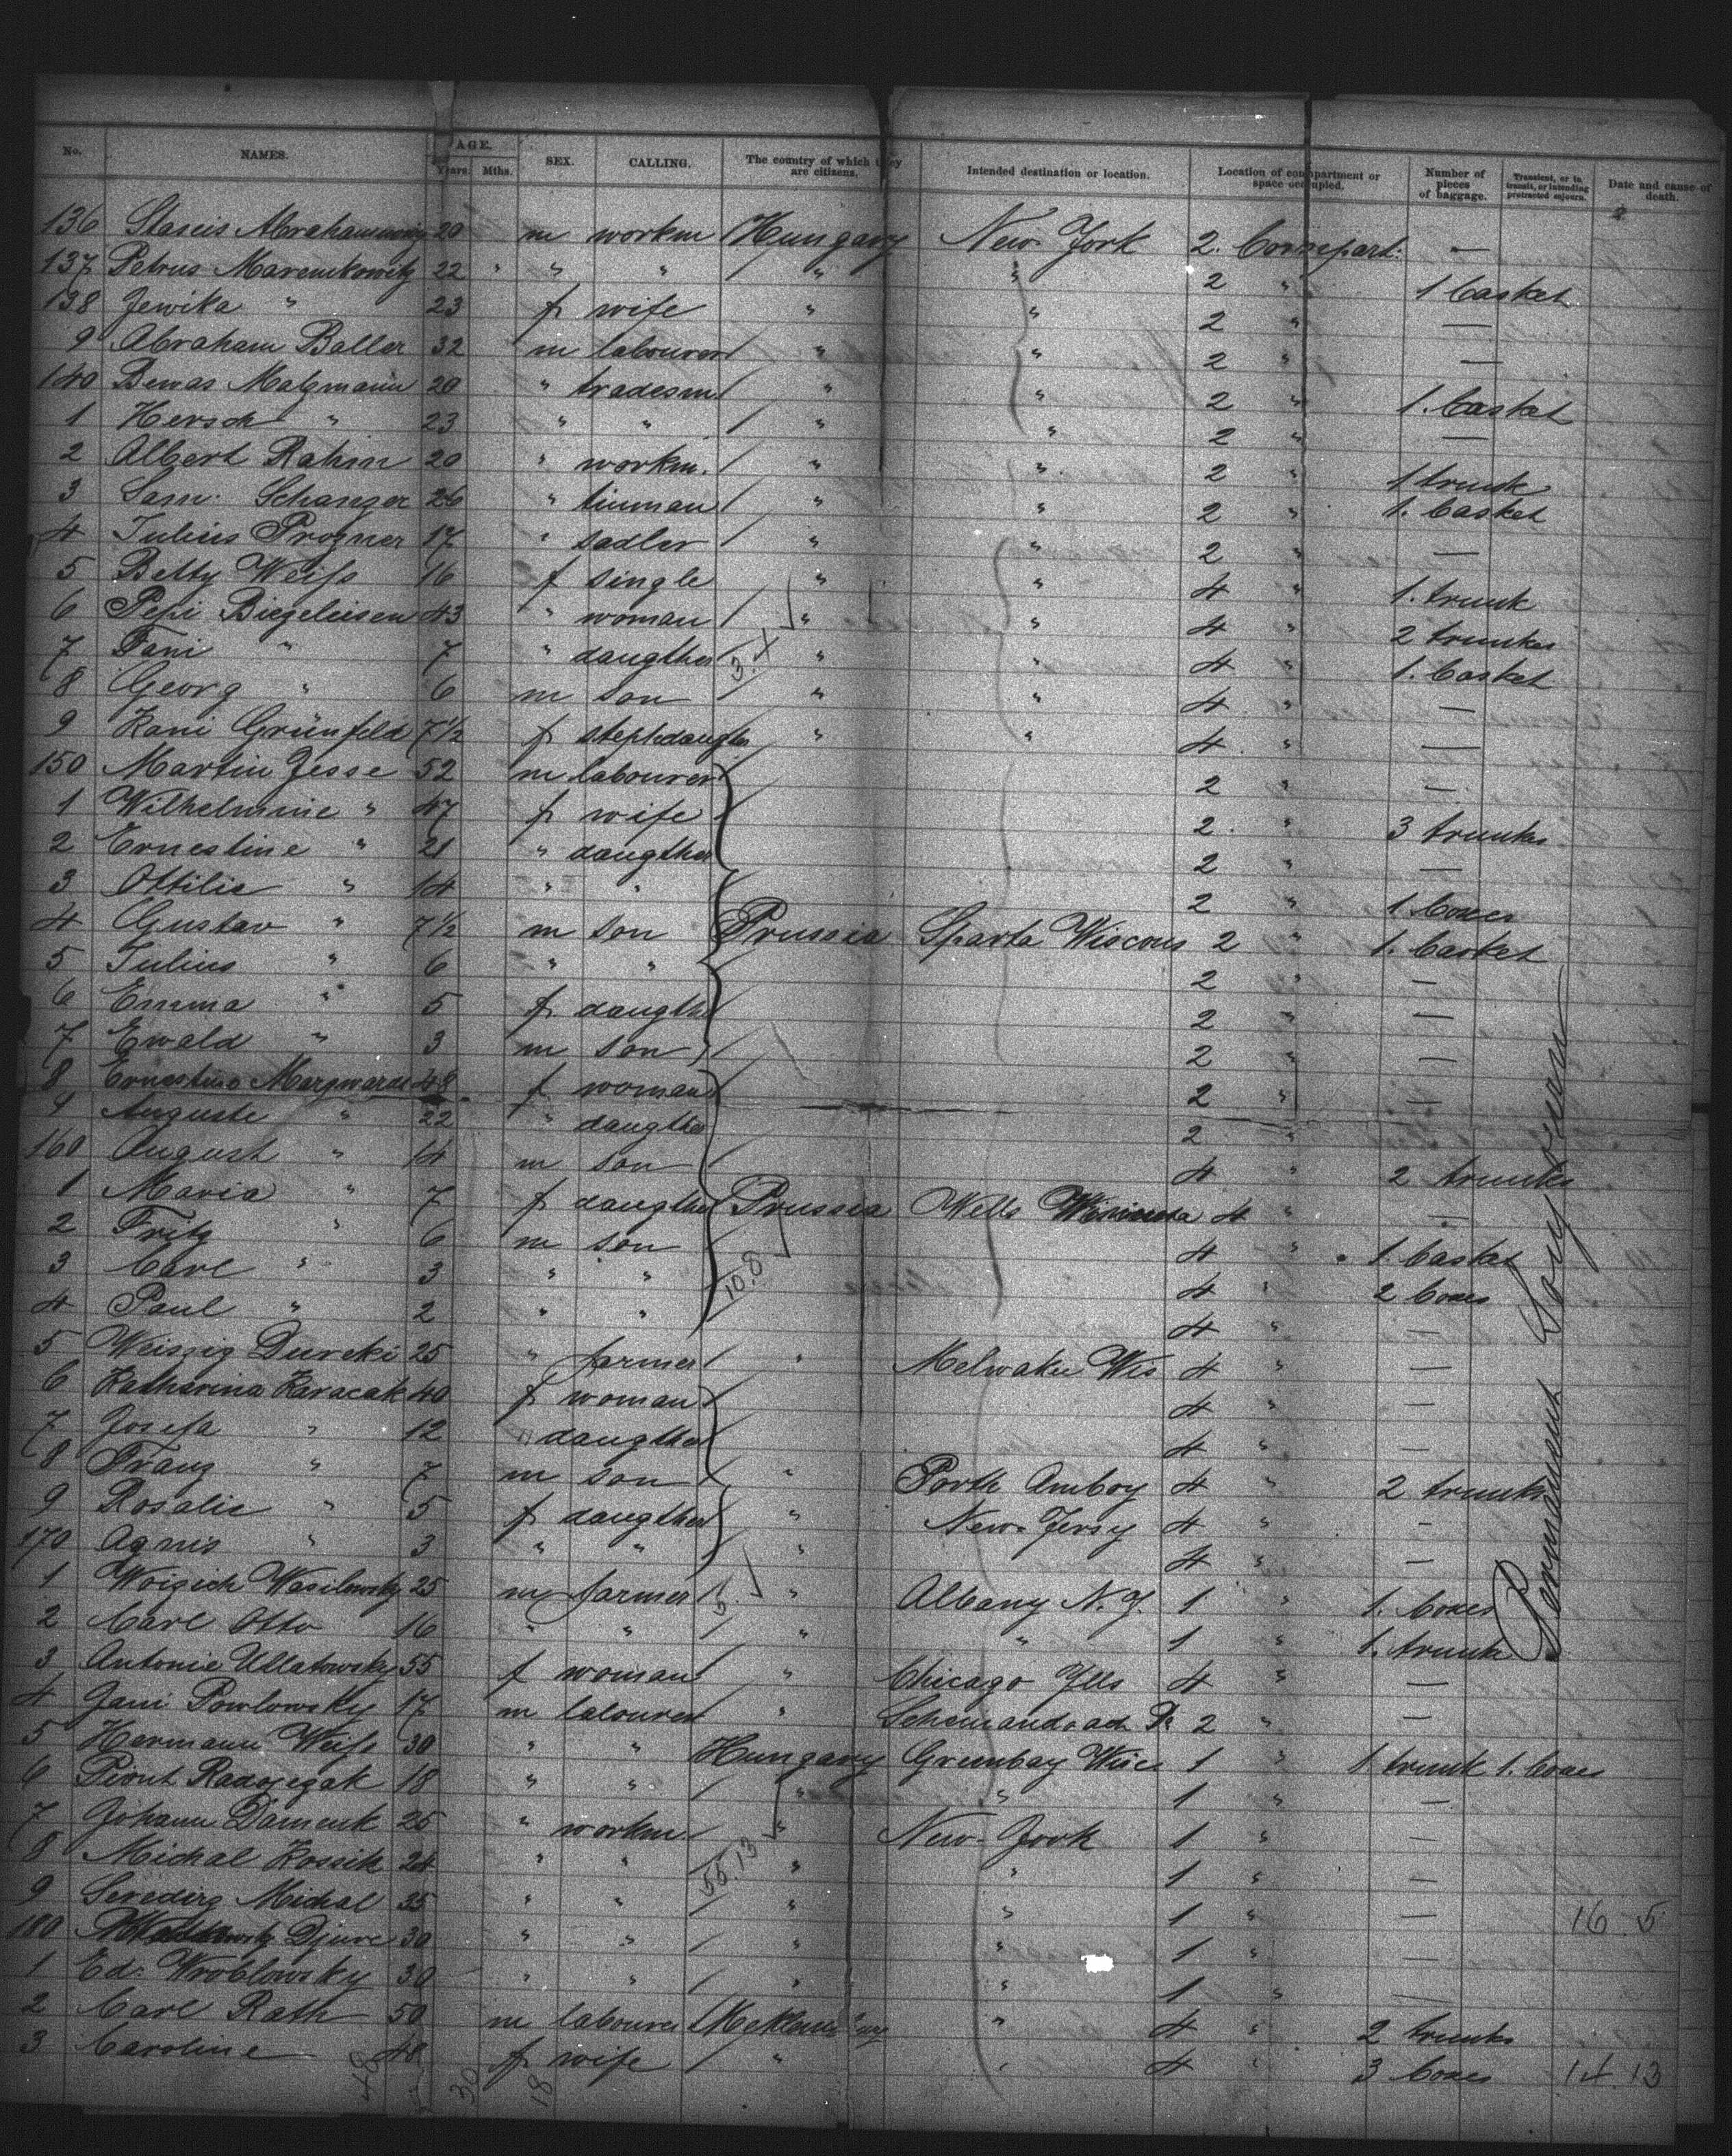 No. NAMES. AGE. Years. Mths. SEX. CALLING. The country of which they are citizens. Intended destination or location. Location of compartment or space occupied. Number of pieces of baggage. Transient, or in transit, or intending protracted sojourn. Date and cause of death.
136 20 m workm Hungary New-York 2. Compart: —
137 Petrus 22 " " " " 2 " 1 basket
138 Jewika " 23 f wife " " 2 " —
9 Abraham Baller 32 m labourer " " 2 " —
140 Malzmann 20 " tradesm " " 2 " 1. basket
1 Hersch " 23 " " " " 2 " —
2 Albert Rahm 20 " workm. " " 2 " 1 trunk
3 Sam: Schanzer 26 " tinman " " 2 " 1. basket
4 Julius Prozner 17 " sadler " " 2 " —
5 Betty Weiss 16 f single " " 4 " 1. trunk
6 Pepi Biegeleisen 43 " woman " " 4 " 2 trunkes
7 Fani " 7 " daugther " " 4 " 1. basket
8 Georg " 6 m son " " 4 " —
9 Kani Grünfeld 7 1/2 f " " 4 " —
150 Martin Jesse 52 m labourer 2 " —
1 Wilhelmine " 47 f wife 2. " 3 trunks
2 Ernestine " 21 " daugther 2 " —
3 Ottilie " 14 " " 2 " 1 boxes
4 Gustav " 7 1/2 m son Prussia Sparta Wiscons 2 " 1. basket
5 Julius " 6 " " 2 " —
6 Emma " 5 f daugthe 2 " —
7 Ewald " 3 m son 2 " —
8 Ernestine Marquardt 48 f woman 2 " —
9 Auguste " 22 " daugther 2 "
160 August " 14 m son 4 " 2 trunks
1 Maria " 7 f daugther Prussia Wells 4 " —
2 Fritz " 6 m son 4 " 1. basket
3 Carl " 3 " " 4 " 2 boxes
4 Paul " 2 " " 4 " —
5 25 " farmer " Melwakee Wis 4 " —
6 Katharina Karacak 40 f woman 4 " —
7 Josefa " 12 " daugther 4 " —
8 Franz " 7 m son " Porth Amboy 4 " 2 trunks
9 Rosalie " 5 f daugther " New-Jersy 4 " —
170 Agnis " 3 " " " 4 " —
1 25 m farmer " Albany N.Y. 1 " 1. boxes
2 Carl Otto 16 " " " " 1 " 1. trunk
3 Antonie Ullatowsky 55 f woman " Chicago Ills 4 " —
4 Jani Powlowsky 17 m labourer " 2 " —
5 Hermann Weiss 30 " " Hungary Greenbay Wisc 1 " 1 trunk 1. boxes
6 18 " " " " 1 " —
7 Johann Damenk 26 " workm. " New-York 1 " —
8 Michal Kossik 24 " " " " 1 " —
9 Michal 35 " " " " 1 " — 16 5
180 Djure 30 " " " " 1 " —
1 Ed: Wroblowsky 30 " " " " 1 " —
2 Carl Rath 50 m labourer " 4 " 2 trunks
3 Caroline 48 f wife " " 4 " 3 boxes 14 13
3.1
10.8
5.
55.13
48
30
18
Permanent Sojourn